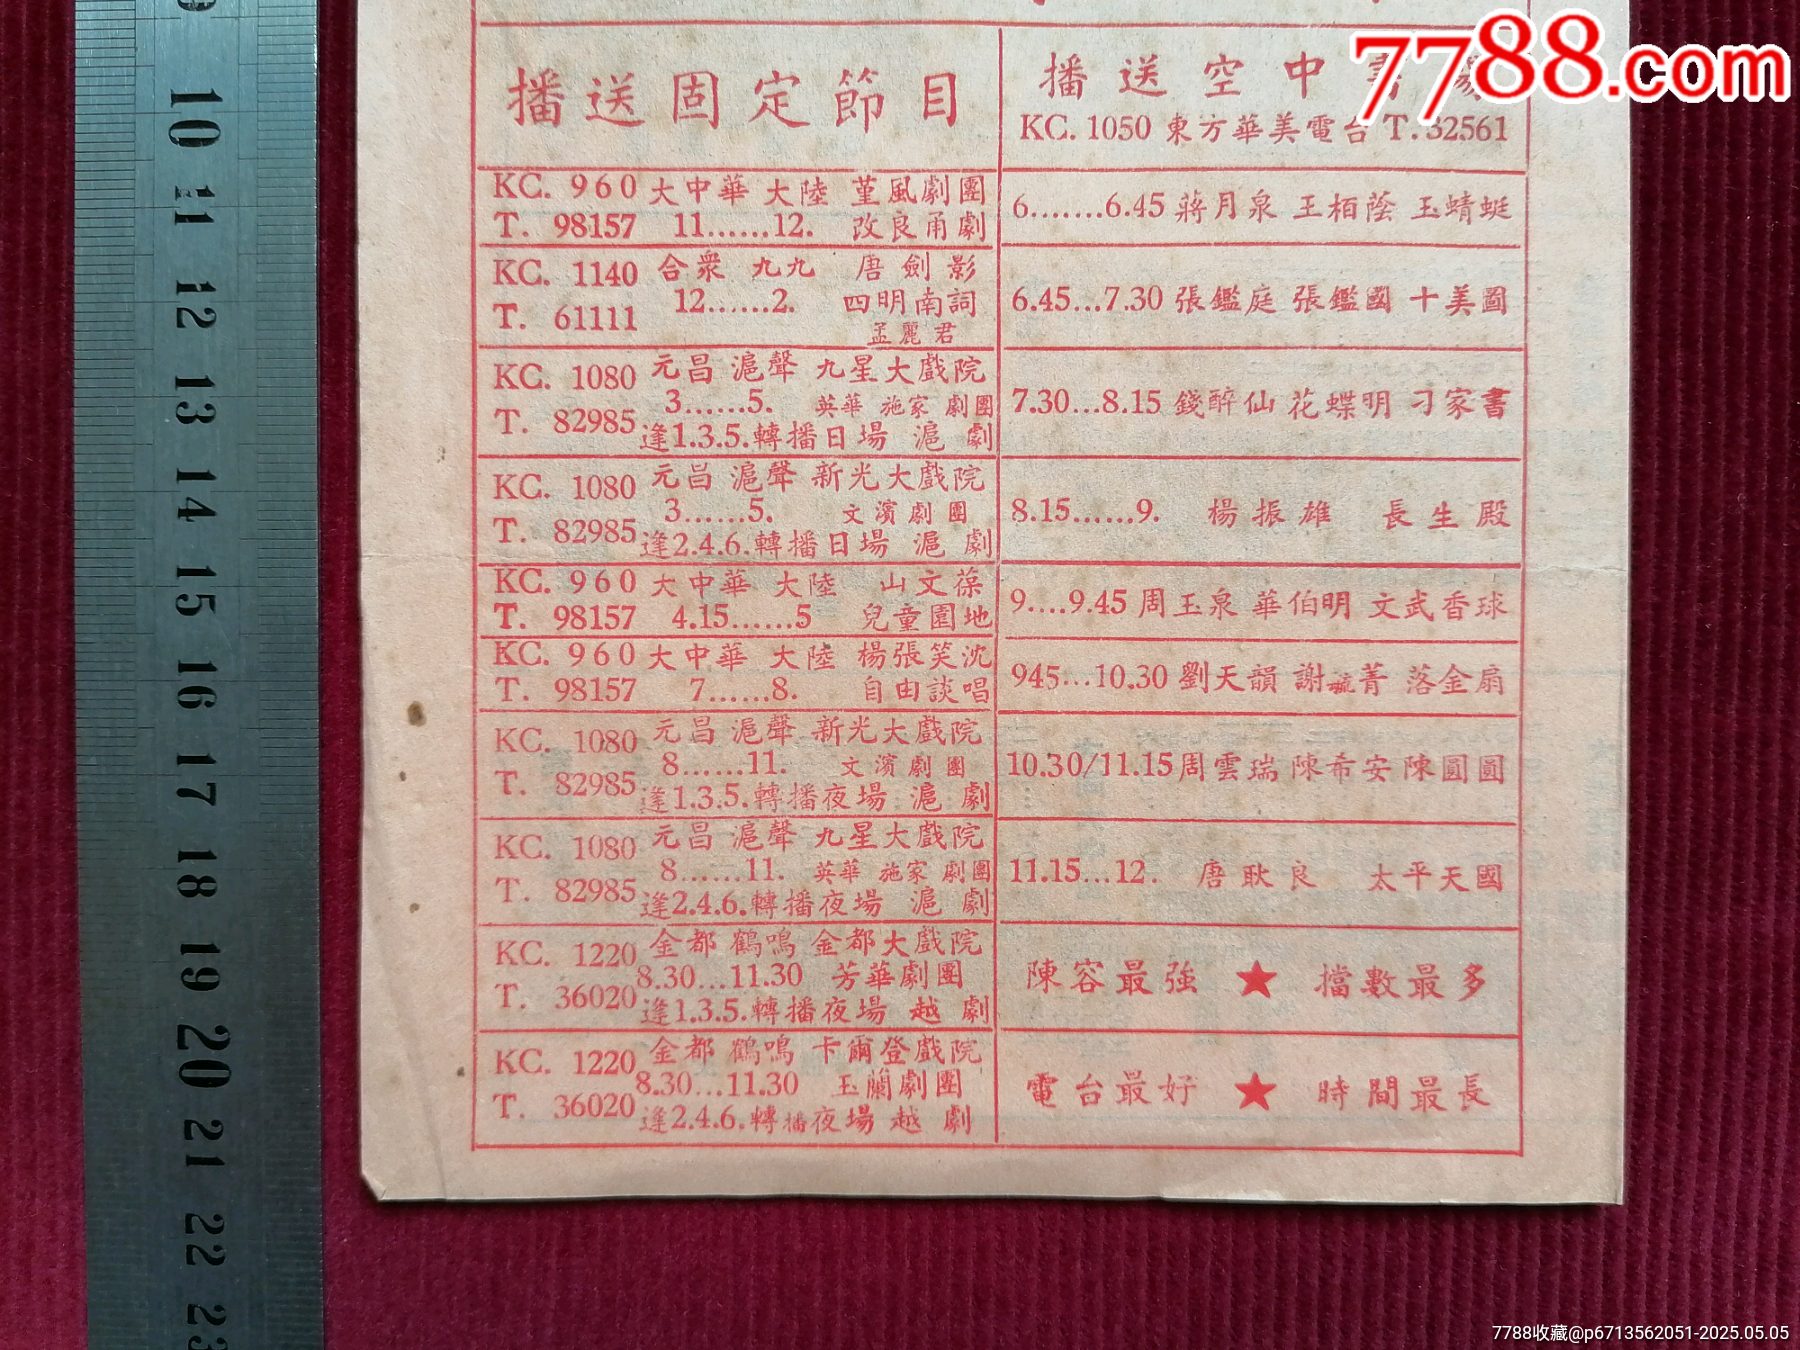 播送固定節目
KC. 960 大中華 大陸 堇風劇團
T. 98157 11......12. 改良甬劇
KC. 1140 合衆 九九 唐劍影
T. 61111 12......2. 四明南詞
孟麗君
KC. 1080 元昌 滬聲 九星大戲院
3......5. 英華 施家 劇團
T. 82985 逢1.3.5.轉播日場 滬劇
KC. 1080 元昌 滬聲 新光大戲院
3......5. 文濱劇團
T. 82985 逢2.4.6.轉播日場 滬劇
KC. 960 大中華 大陸 山文葆
T. 98157 4.15......5 兒童園地
KC. 960 大中華 大陸 楊張笑沈
T. 98157 7......8. 自由談唱
KC. 1080 元昌 滬聲 新光大戲院
8......11. 文濱劇團
T. 82985 逢1.3.5.轉播夜場 滬劇
KC. 1080 元昌 滬聲 九星大戲院
8......11. 英華 施家 劇團
T. 82985 逢2.4.6.轉播夜場 滬劇
KC. 1220 金都 鶴鳴 金都大戲院
8.30...11.30 芳華劇團
T. 36020 逢1.3.5.轉播夜場 越劇
KC. 1220 金都 鶴鳴 卡爾登戲院
8.30...11.30 玉蘭劇團
T. 36020 逢2.4.6.轉播夜場 越劇
播送空中書
KC. 1050 東方華美電台 T. 32561
6.......6.45 蔣月泉 王栢蔭 玉蜻蜓
6.45...7.30 張鑑庭 張鑑國 十美圖
7.30...8.15 錢醉仙 花蝶明 刁家書
8.15......9. 楊振雄 長生殿
9....9.45 周玉泉 華伯明 文武香球
945...10.30 劉天韻 謝毓菁 落金扇
10.30/11.15 周雲瑞 陳希安 陳圓圓
11.15...12. 唐耿良 太平天國
陳容最強 ★ 擋數最多
電台最好 ★ 時間最長
7788.com
10
11
12
13
14
15
16
17
18
19
20
21
22
23
7788收藏@p6713562051-2025.05.05